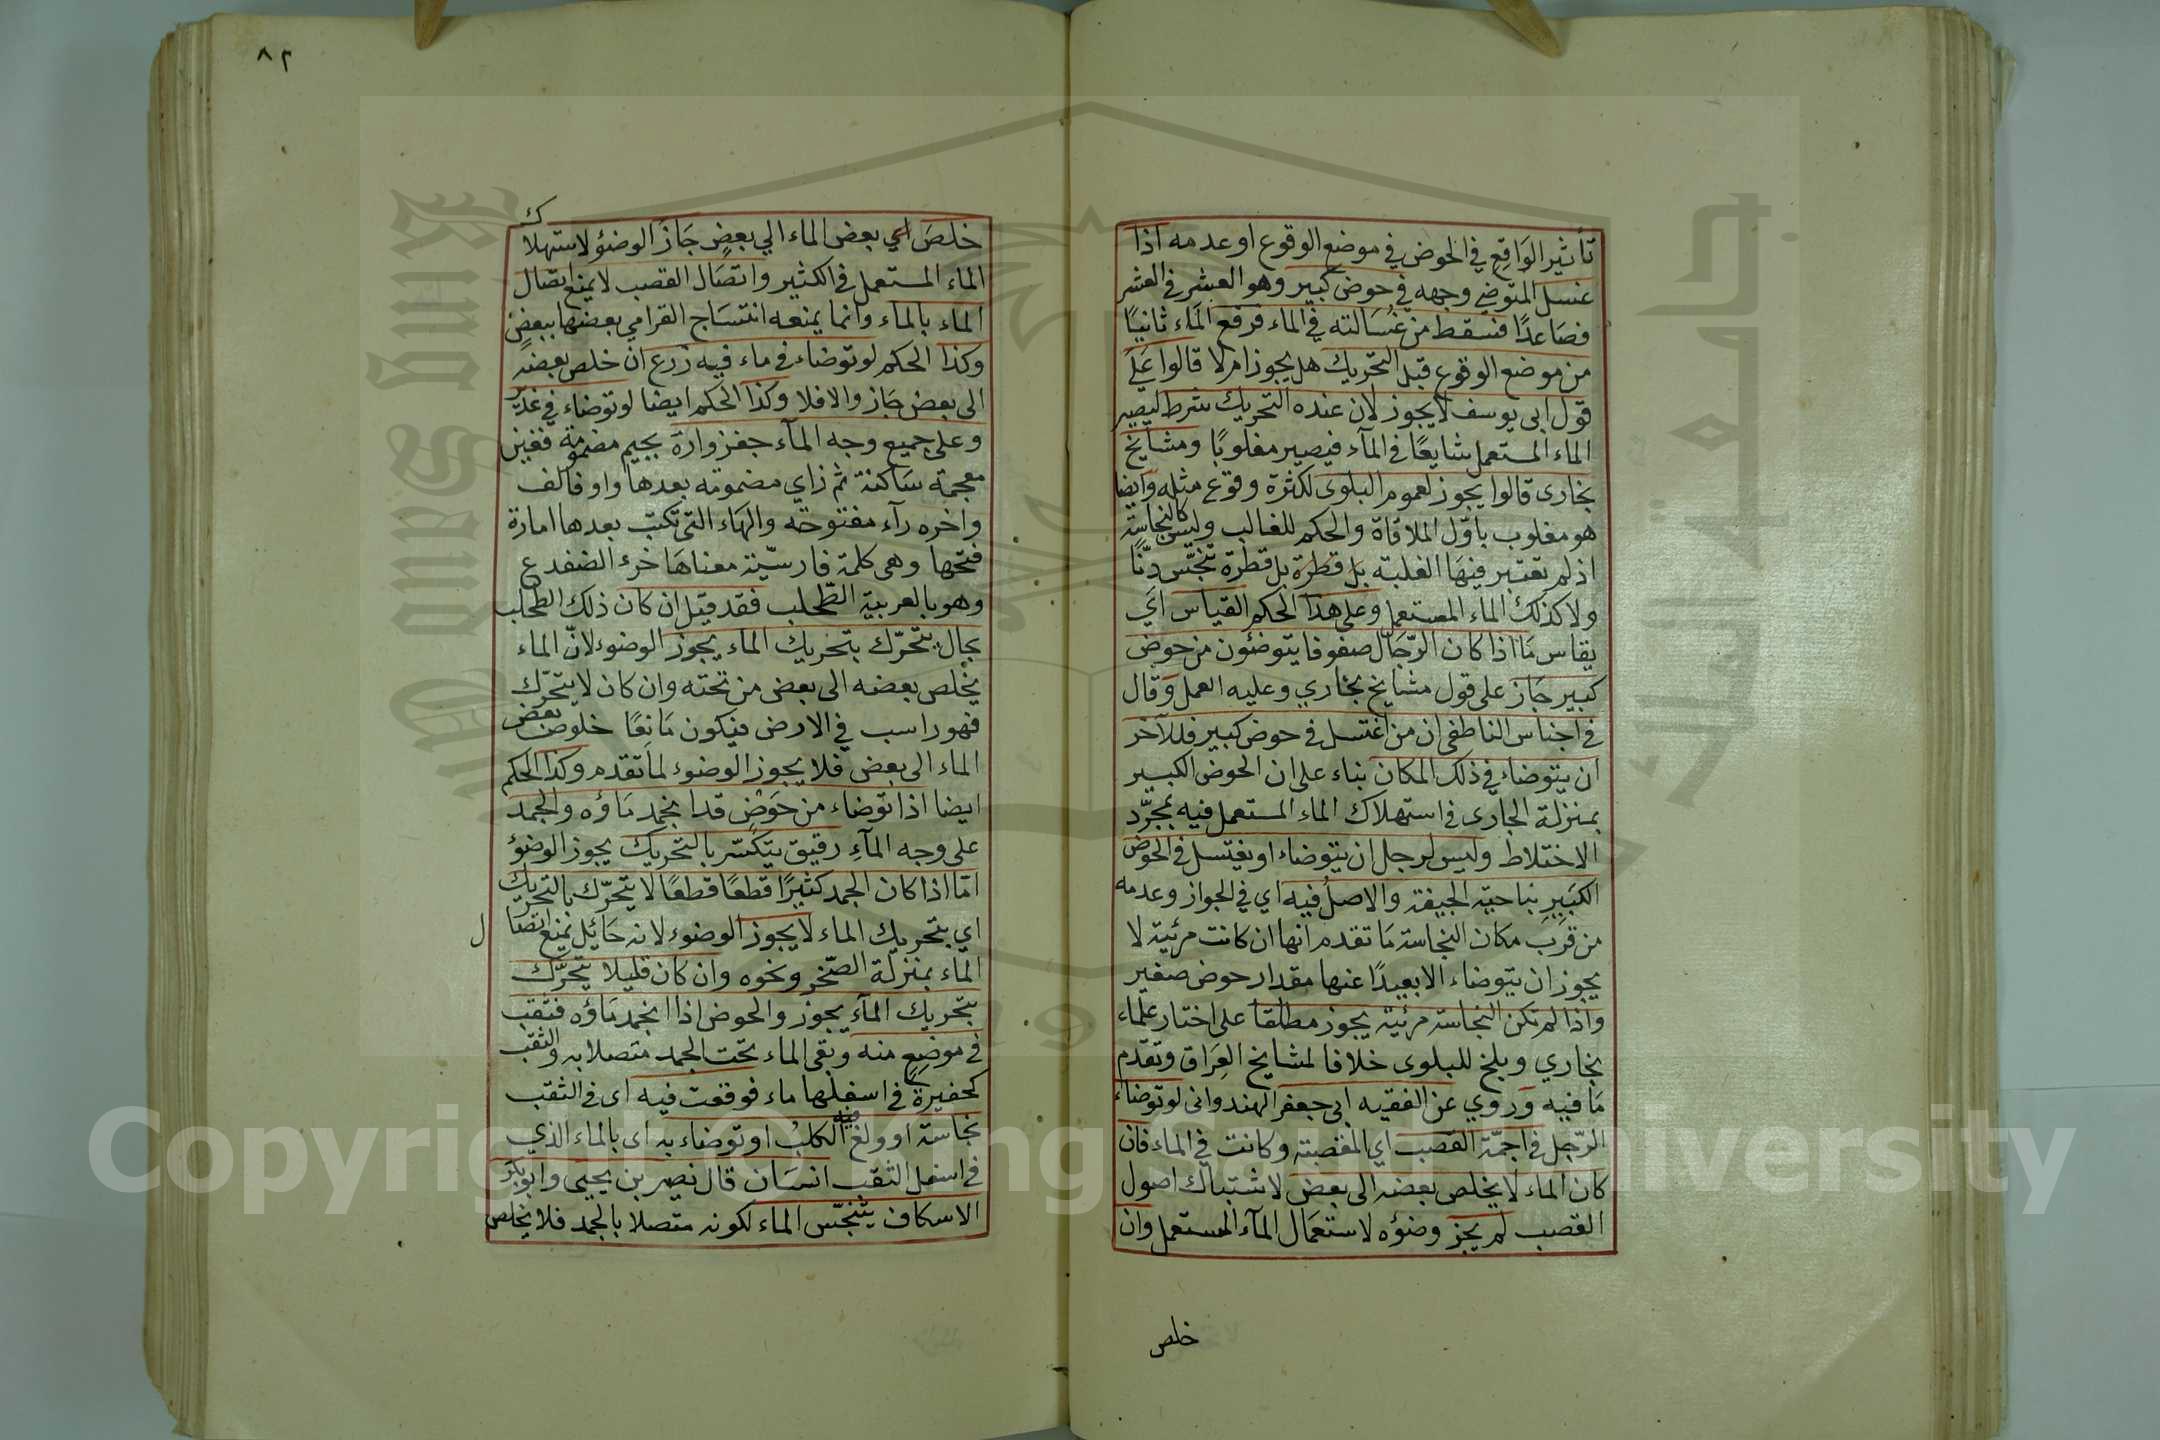 تأثير الواقع في الحوض في موضع الوقوع او عدمه اذا
غسل المتوضي وجهه في حوض كبير وهو العشر في العشر
فصاعدًا فسقط من غسالته في الماء فرفع الماء ثانيًا
من موضع الوقوع قبل التحريك هل يجوز ام لا قالوا على
قول ابى يوسف لا يجوز لان عنده التحريك شرط ليصير
الماء المستعمل شايعًا في المآء فيصير مغلوبًا ومشايخ
بخارى قالوا يجوز لعموم البلوى لكثرة وقوع مثله وايضا
هو مغلوب باوّل الملاقاة والحكم للغالب وليس كالنجاسة
اذ لم تعتبر فيها الغلبة بل قطرة بل قطرة تنجّس دنّا
ولا كذلك الماء المستعمل وعلى هذا الحكم القياس اي
يقاس ما اذا كان الرّجال صفوفا يتوضئون من حوض
كبير جاز على قول مشايخ بخاري وعليه العمل وقال
في اجناس الناطفي ان من اغتسل في حوض كبير فللآخر
ان يتوضاء في ذلك المكان بناء على ان الحوض الكبير
بمنزلة الجارى في استهلاك الماء المستعمل فيه بمجرّد
الاختلاط وليس لرجل ان يتوضاء او يغتسل في الحوض
الكبير بناحية الجيفة والاصل فيه اي في الجواز وعدمه
من قرب مكان النجاسة ما تقدم انها ان كانت مرئية لا
يجوز ان يتوضاء الا بعيدًا عنها مقدار حوض صغير
واذا لم تكن النجاسة مرئية يجوز مطلقا على اختار علماء
بخاري وبلخ للبلوى خلافا لمشايخ العراق وتقدم
ما فيه وروي عن الفقيه ابى جعفر الهندوانى لو توضاء
الرّجل في اجمّة القصب اي المقصبة وكانت في الماء فان
كان الماء لا يخلص بعضه الى بعض لاشتباك اصول
القصب لم يجز وضوءه لاستعمال المآء المستعمل وان
خلص
٨٢
خلص اي بعض الماء الي بعض جاز الوضؤ لاستهلا
ك
الماء المستعمل في الكثير واتصال القصب لا يمنع اتصال
الماء بالماء وانما يمنعه انتساج القرامي بعضها ببعض
وكذا الحكم لو توضاء في ماء فيه زرع ان خلص بعضه
الى بعض جاز والا فلا وكذا الحكم ايضا لو توضاء في غدير
وعلى جميع وجه المآء جغزوارة بجيم مضمومة فغين
معجمة ساكنة ثم زاي مضمومة بعدها واو فالف
واخره رآء مفتوحة والهاء التى تكتب بعدها امارة
فتحها وهى كلمة فارسيّة معناها خرء الضفدع
وهو بالعربية الطّحلب فقد قيل ان كان ذلك الطحلب
بحال يتحرّك بتحريك الماء يجوز الوضوء لانّ الماء
يخلص بعضه الى بعض من تحته وان كان لا يتحرّك
فهو راسب في الارض فيكون مانعًا خلوص بعض
الماء الى بعض فلا يجوز الوضوء لما تقدم وكذا الحكم
ايضا اذا توضاء من حوض قد انجمد ماؤه والجمد
على وجه المآء رقيق يتكسّر بالتحريك يجوز الوضؤ
امّا اذا كان الجمد كثيرًا قطعًا قطعًا لا يتحرّك بالتحريك
اي بتحريك الماء لا يجوز الوضوء لانه حائل يمنع اتصا
ل
الماء بمنزلة الصّخر ونحوه وان كان قليلا يتحرّك
بتحريك المآء يجوز والحوض اذا انجمد ماؤه فثقب
في موضع منه وبقى الماء تحت الجمد متصلا به والثقب
كحفيرة في اسفلها ماء فوقعت فيه اى في الثقب
نجاسة او ولغ فيه الكلب او توضاء به اى بالماء الذي
في اسفل الثقب انسان قال نصير بن يحيى وابو بكر
الاسكاف يتنجّس الماء لكونه متصلا بالجمد فلا يخلص
Copyright © King Saud University